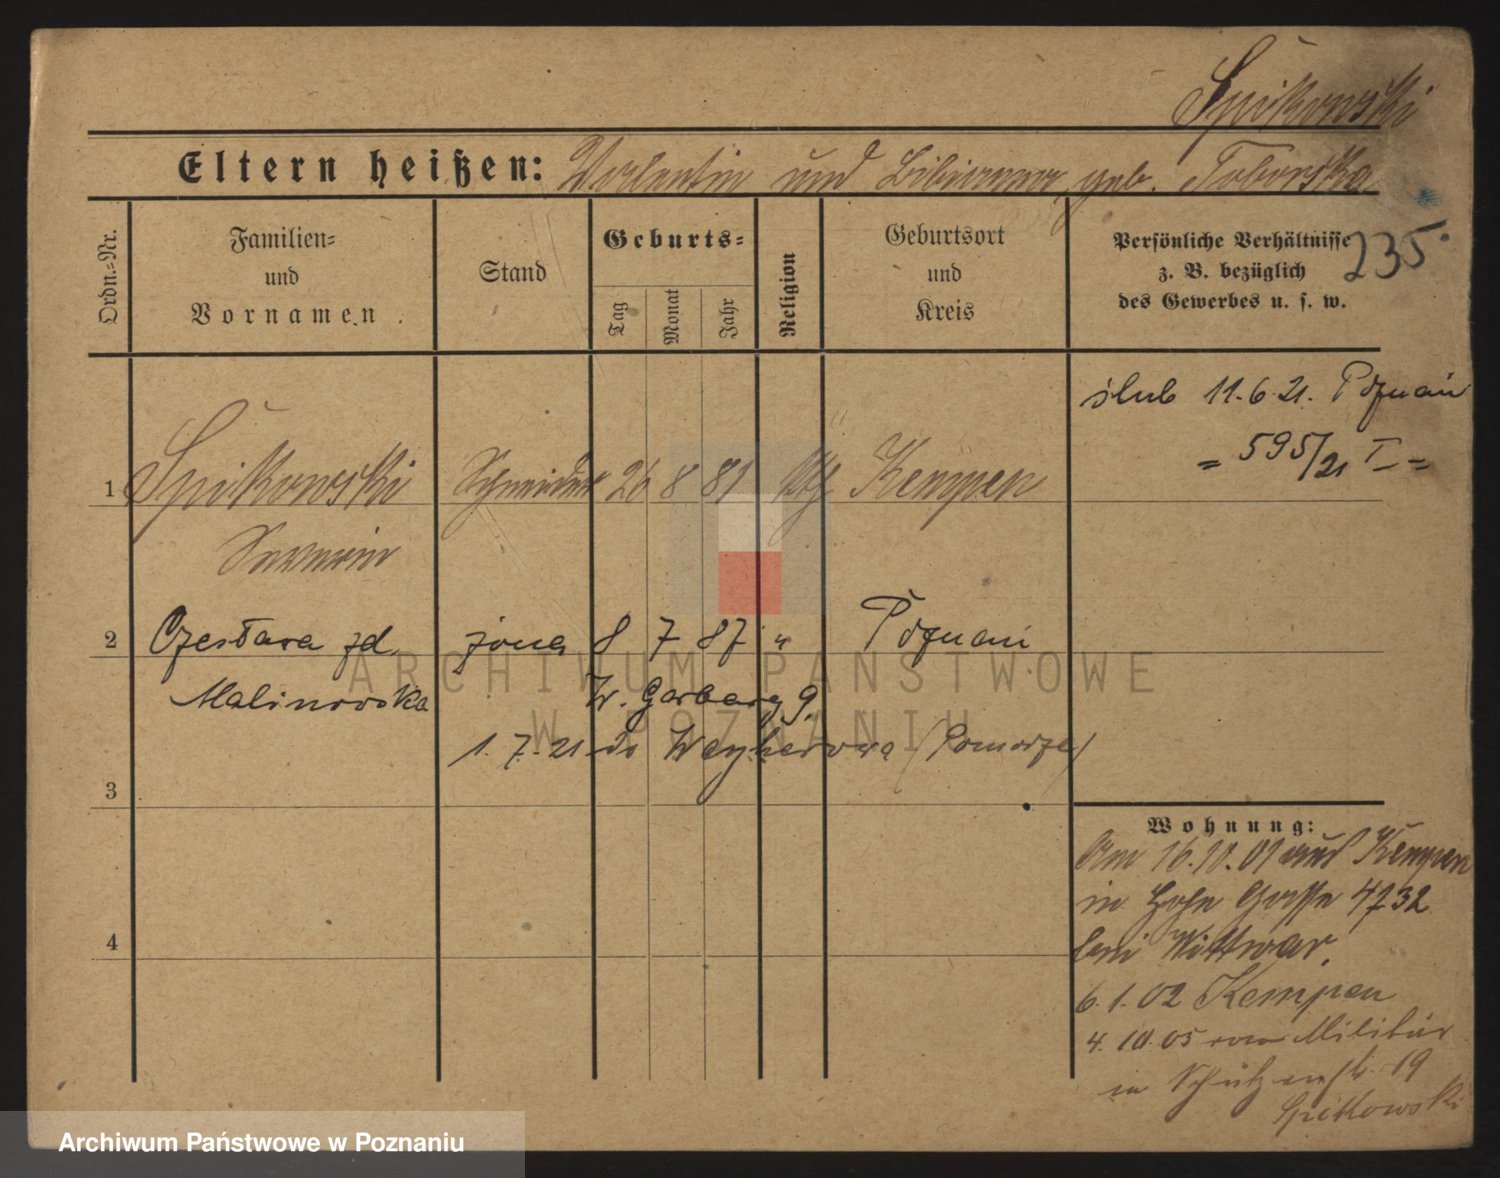 Spikowski
Eltern heißen: Valentin und Bibianna geb. Taborska
Ordn.=Nr.
Familien=
und
Vornamen.
Stand
Geburts=
Tag
Monat
Jahr
Religion
Geburtsort
und
Kreis
Persönliche Verhältnisse
z. B. bezüglich
des Gewerbes u. s. w.
235
ślub 11.6.21. Poznań
= 595/21 I =
1 Spikowski Schneider 26 8 81 kth Kempen
Severin
2 Czesława zd. żona 8 7 87 " Poznań
Malinowska W. Garbary 9.
1.7.21 do Weyherowa (Pomorze)
3
4
Wohnung:
Am 16.10.01 aus Kempen
in Hohe Gasse 4 32
bei Wittwar.
6.1.02 Kempen
4.10.05 vom Militär
in Schützenstr. 19
Spikowski
ARCHIWUM PAŃSTWOWE
W POZNANIU
Archiwum Państwowe w Poznaniu